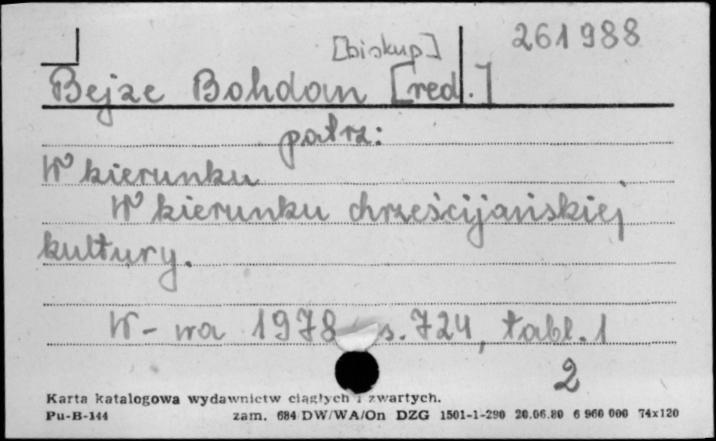 [biskup] 261988
Bejze Bohdan [red.]
patrz:
W kierunku
W kierunku chrześcijańskiej
kultury.
W-wa 1978 s. 724, tabl. 1
2
Karta katalogowa wydawnictw ciągłych i zwartych.
Pu-B-144 zam. 684/DW/WA/On DZG 1501-1-290 20.06.80 6 960 000 74x120